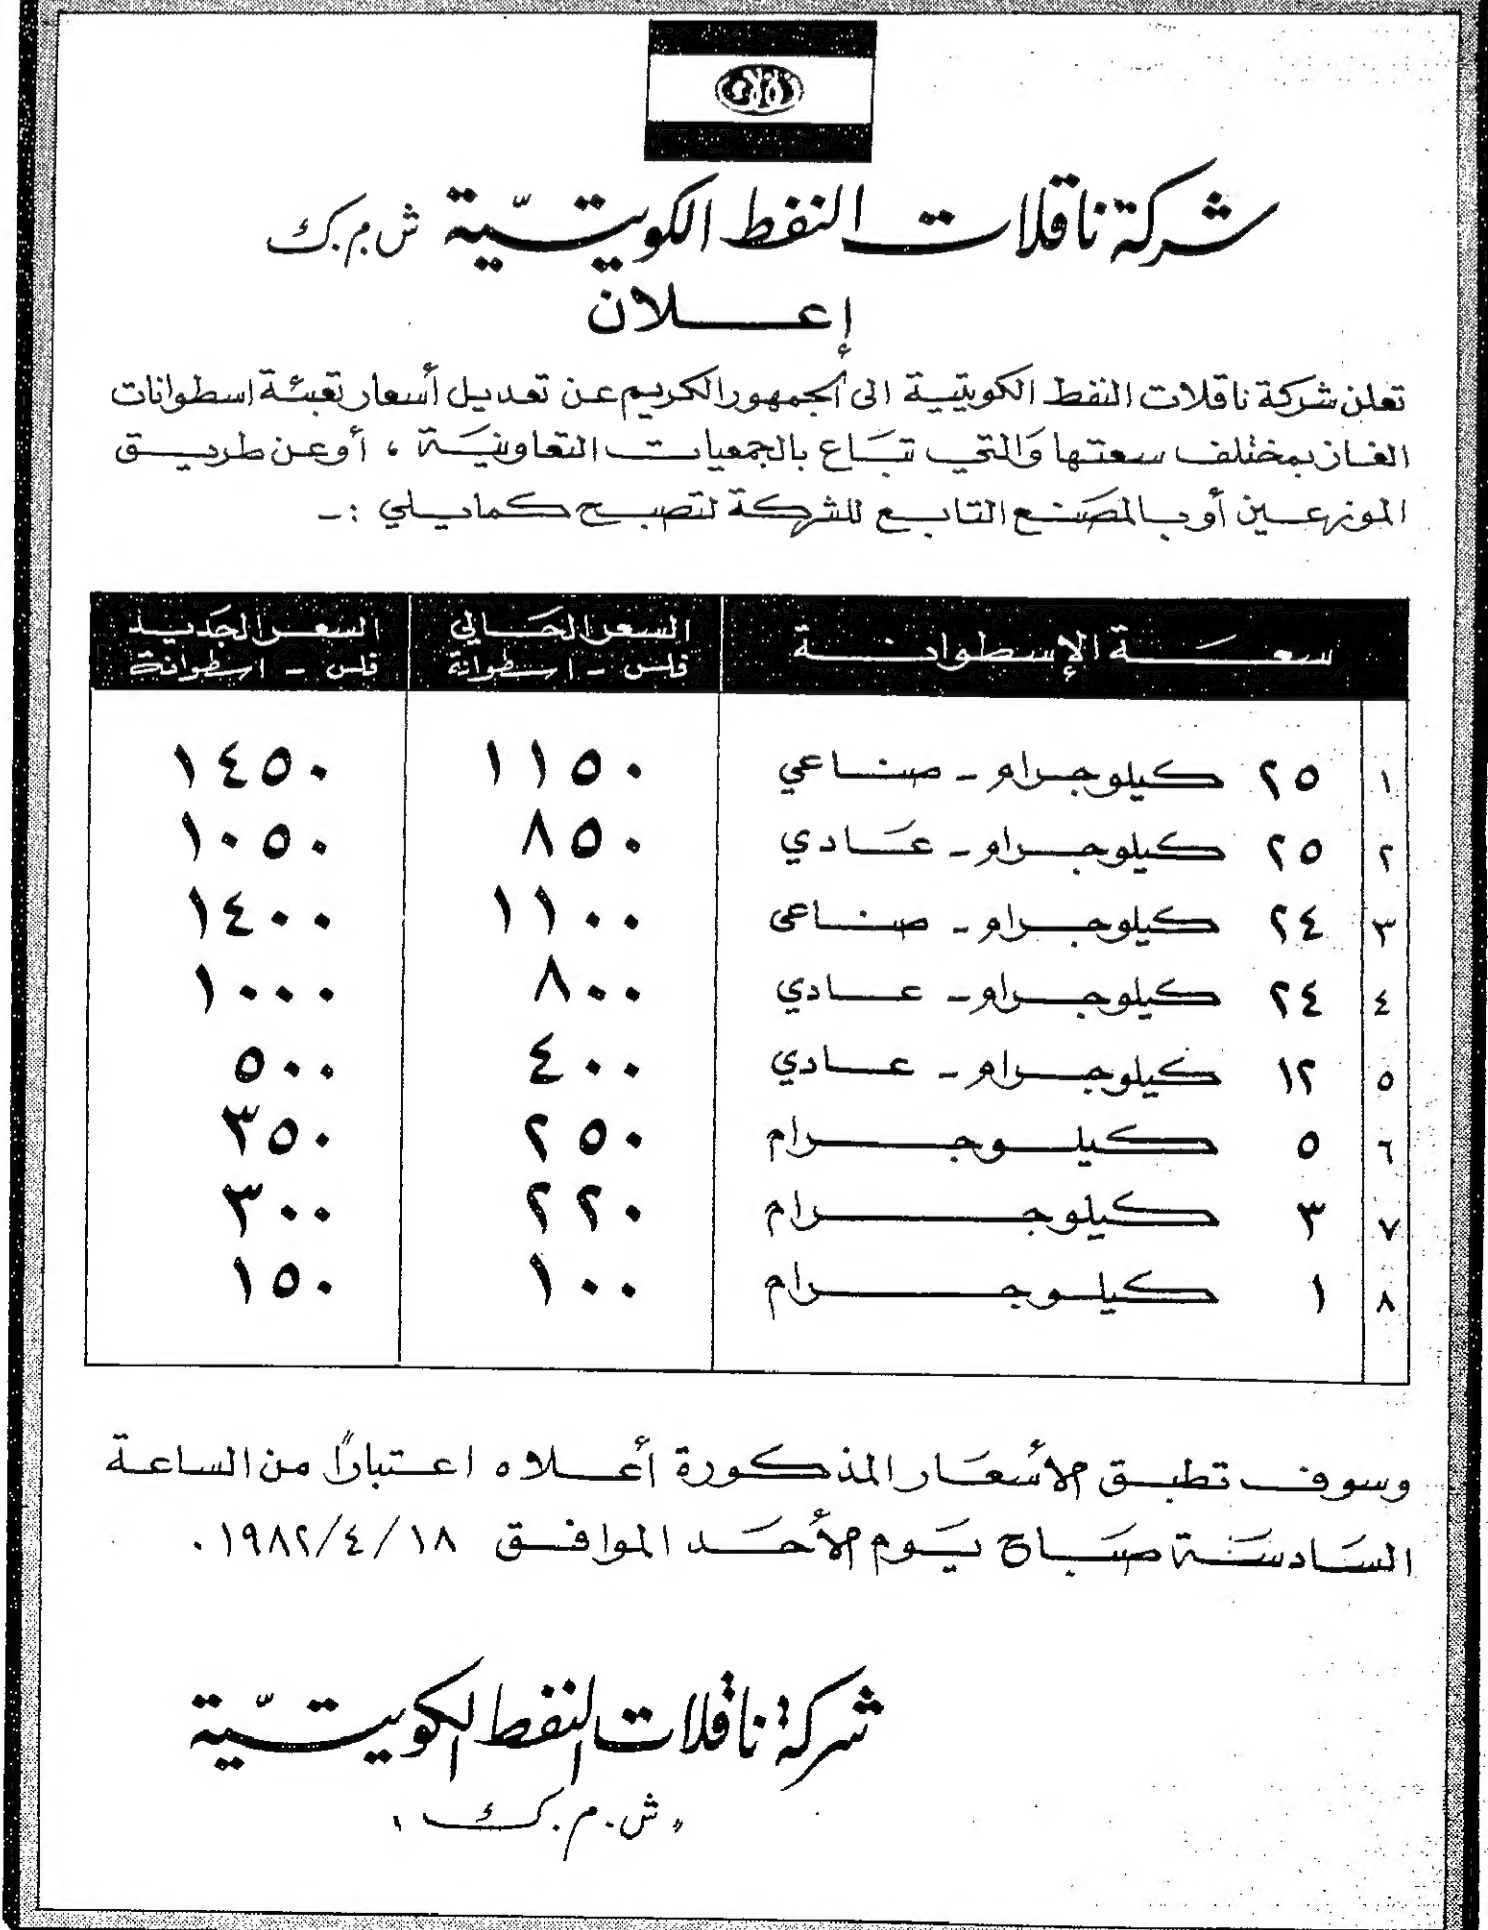 شركة ناقلات النفط الكويتيّة ش.م.ك
إعلان
تعلن شركة ناقلات النفط الكويتية الى الجمهور الكريم عن تعديل أسعار تعبئة اسطوانات
الغاز بمختلف سعتها والتي تباع بالجمعيات التعاونية ، أو عن طريق
الموزعين أو بالمصنع التابع للشركة لتصبح كمايلي :-
سعة الإسطوانة السعر الحالي السعر الجديد
فلس - اسطوانة فلس - اسطوانة
١ ٢٥ كيلوجرام - صناعي ١١٥٠ ١٤٥٠
٢ ٢٥ كيلوجرام - عادي ٨٥٠ ١٠٥٠
٣ ٢٤ كيلوجرام - صناعى ١١٠٠ ١٤٠٠
٤ ٢٤ كيلوجرام - عادي ٨٠٠ ١٠٠٠
٥ ١٢ كيلوجرام - عادي ٤٠٠ ٥٠٠
٦ ٥ كيلوجرام ٢٥٠ ٣٥٠
٧ ٣ كيلوجرام ٢٢٠ ٣٠٠
٨ ١ كيلوجرام ١٠٠ ١٥٠
وسوف تطبق الأسعار المذكورة أعلاه اعتباراً من الساعة
السادسة صباح يوم الأحد الموافق ١٩٨٢/٤/١٨ .
شركة ناقلات النفط الكويتيّة
"ش.م.ك"